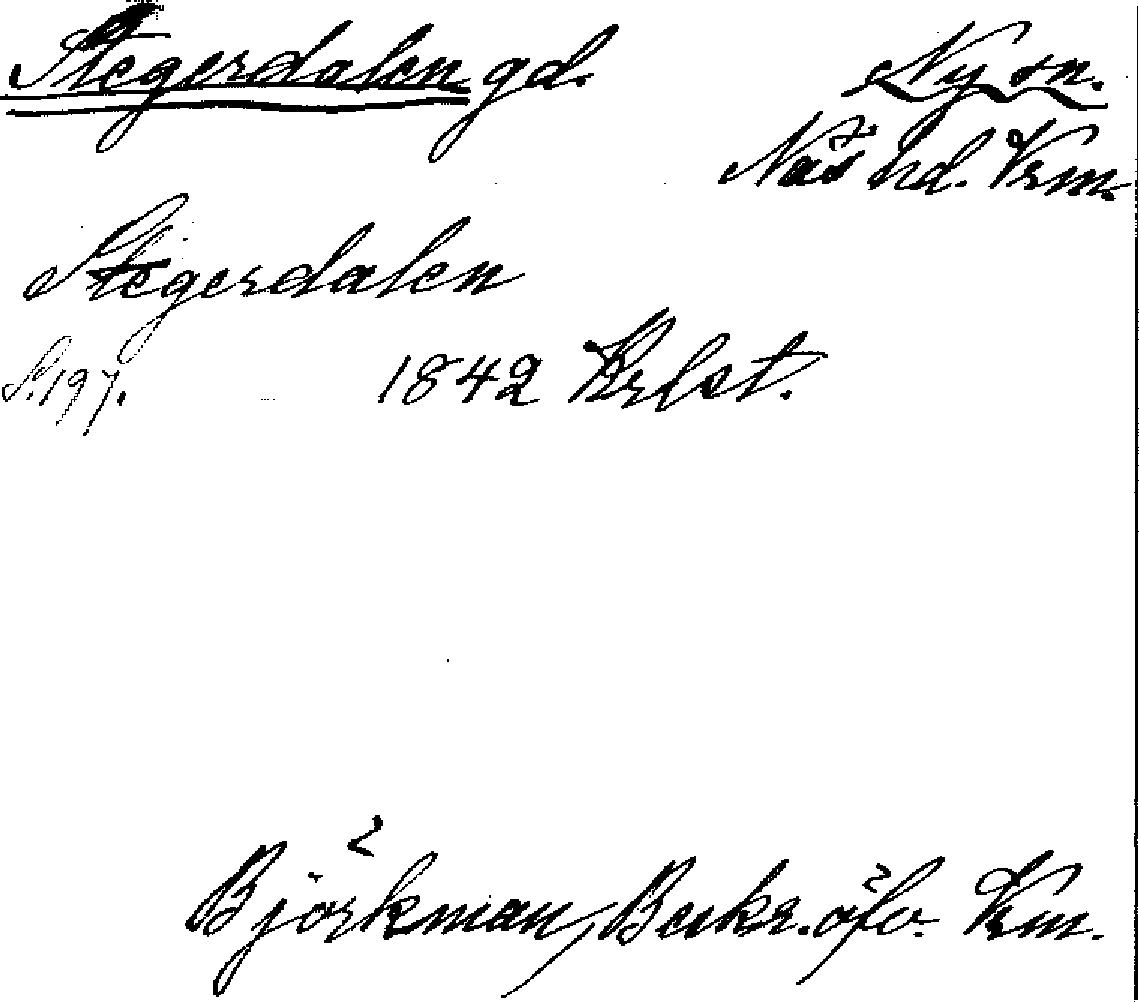 Stegerdalen gd. Ny sn.
Näs hd. Vrm.
Stegerdalen
S. 197. 1842 Krlst.
Björkman, Beskr. öfv. Vrm.